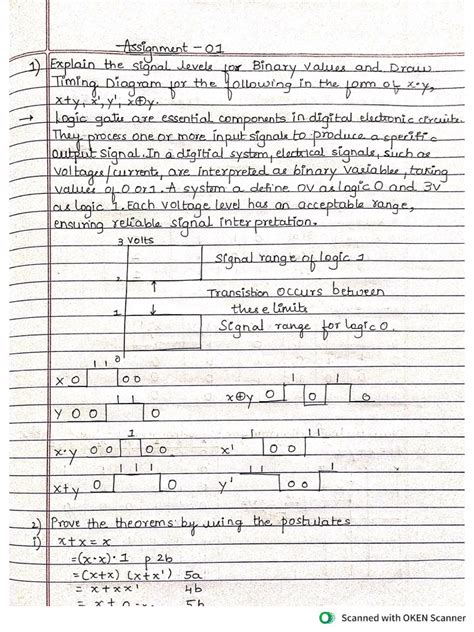 Assignment - 01
1) Explain the signal levels for Binary values and Draw
Timing Diagram for the following in the form of x·y,
x+y, x', y', x⊕y.
→ Logic gate are essential components in digital electronic circuits.
They process one or more input signals to produce a specific
output signal. In a digitial system, electrical signals, such as
voltages/currents, are interpreted as binary variables, taking
values of 0 or 1. A system a define 0V as logic 0 and 3V
as logic 1. Each voltage level has an acceptable range,
ensuring reliable signal interpretation.
3 volts
Signal range of logic 1
Transistion occurs between
these limits
Signal range for logic 0.
0
x 0 1 1 0 0
x⊕y 0 1 0 1 0
y 0 0 1 1 0
x·y 0 0 1 0 0
x' 1 0 0 1 1
x+y 0 1 1 1 0
y' 1 1 0 0 1
2) Prove the theorems by using the postulates
i) x+x = x
= (x+x)·1 p 2b
= (x+x) (x+x') 5a
= x + xx' 4b
= x + 0 5b
Scanned with OKEN Scanner